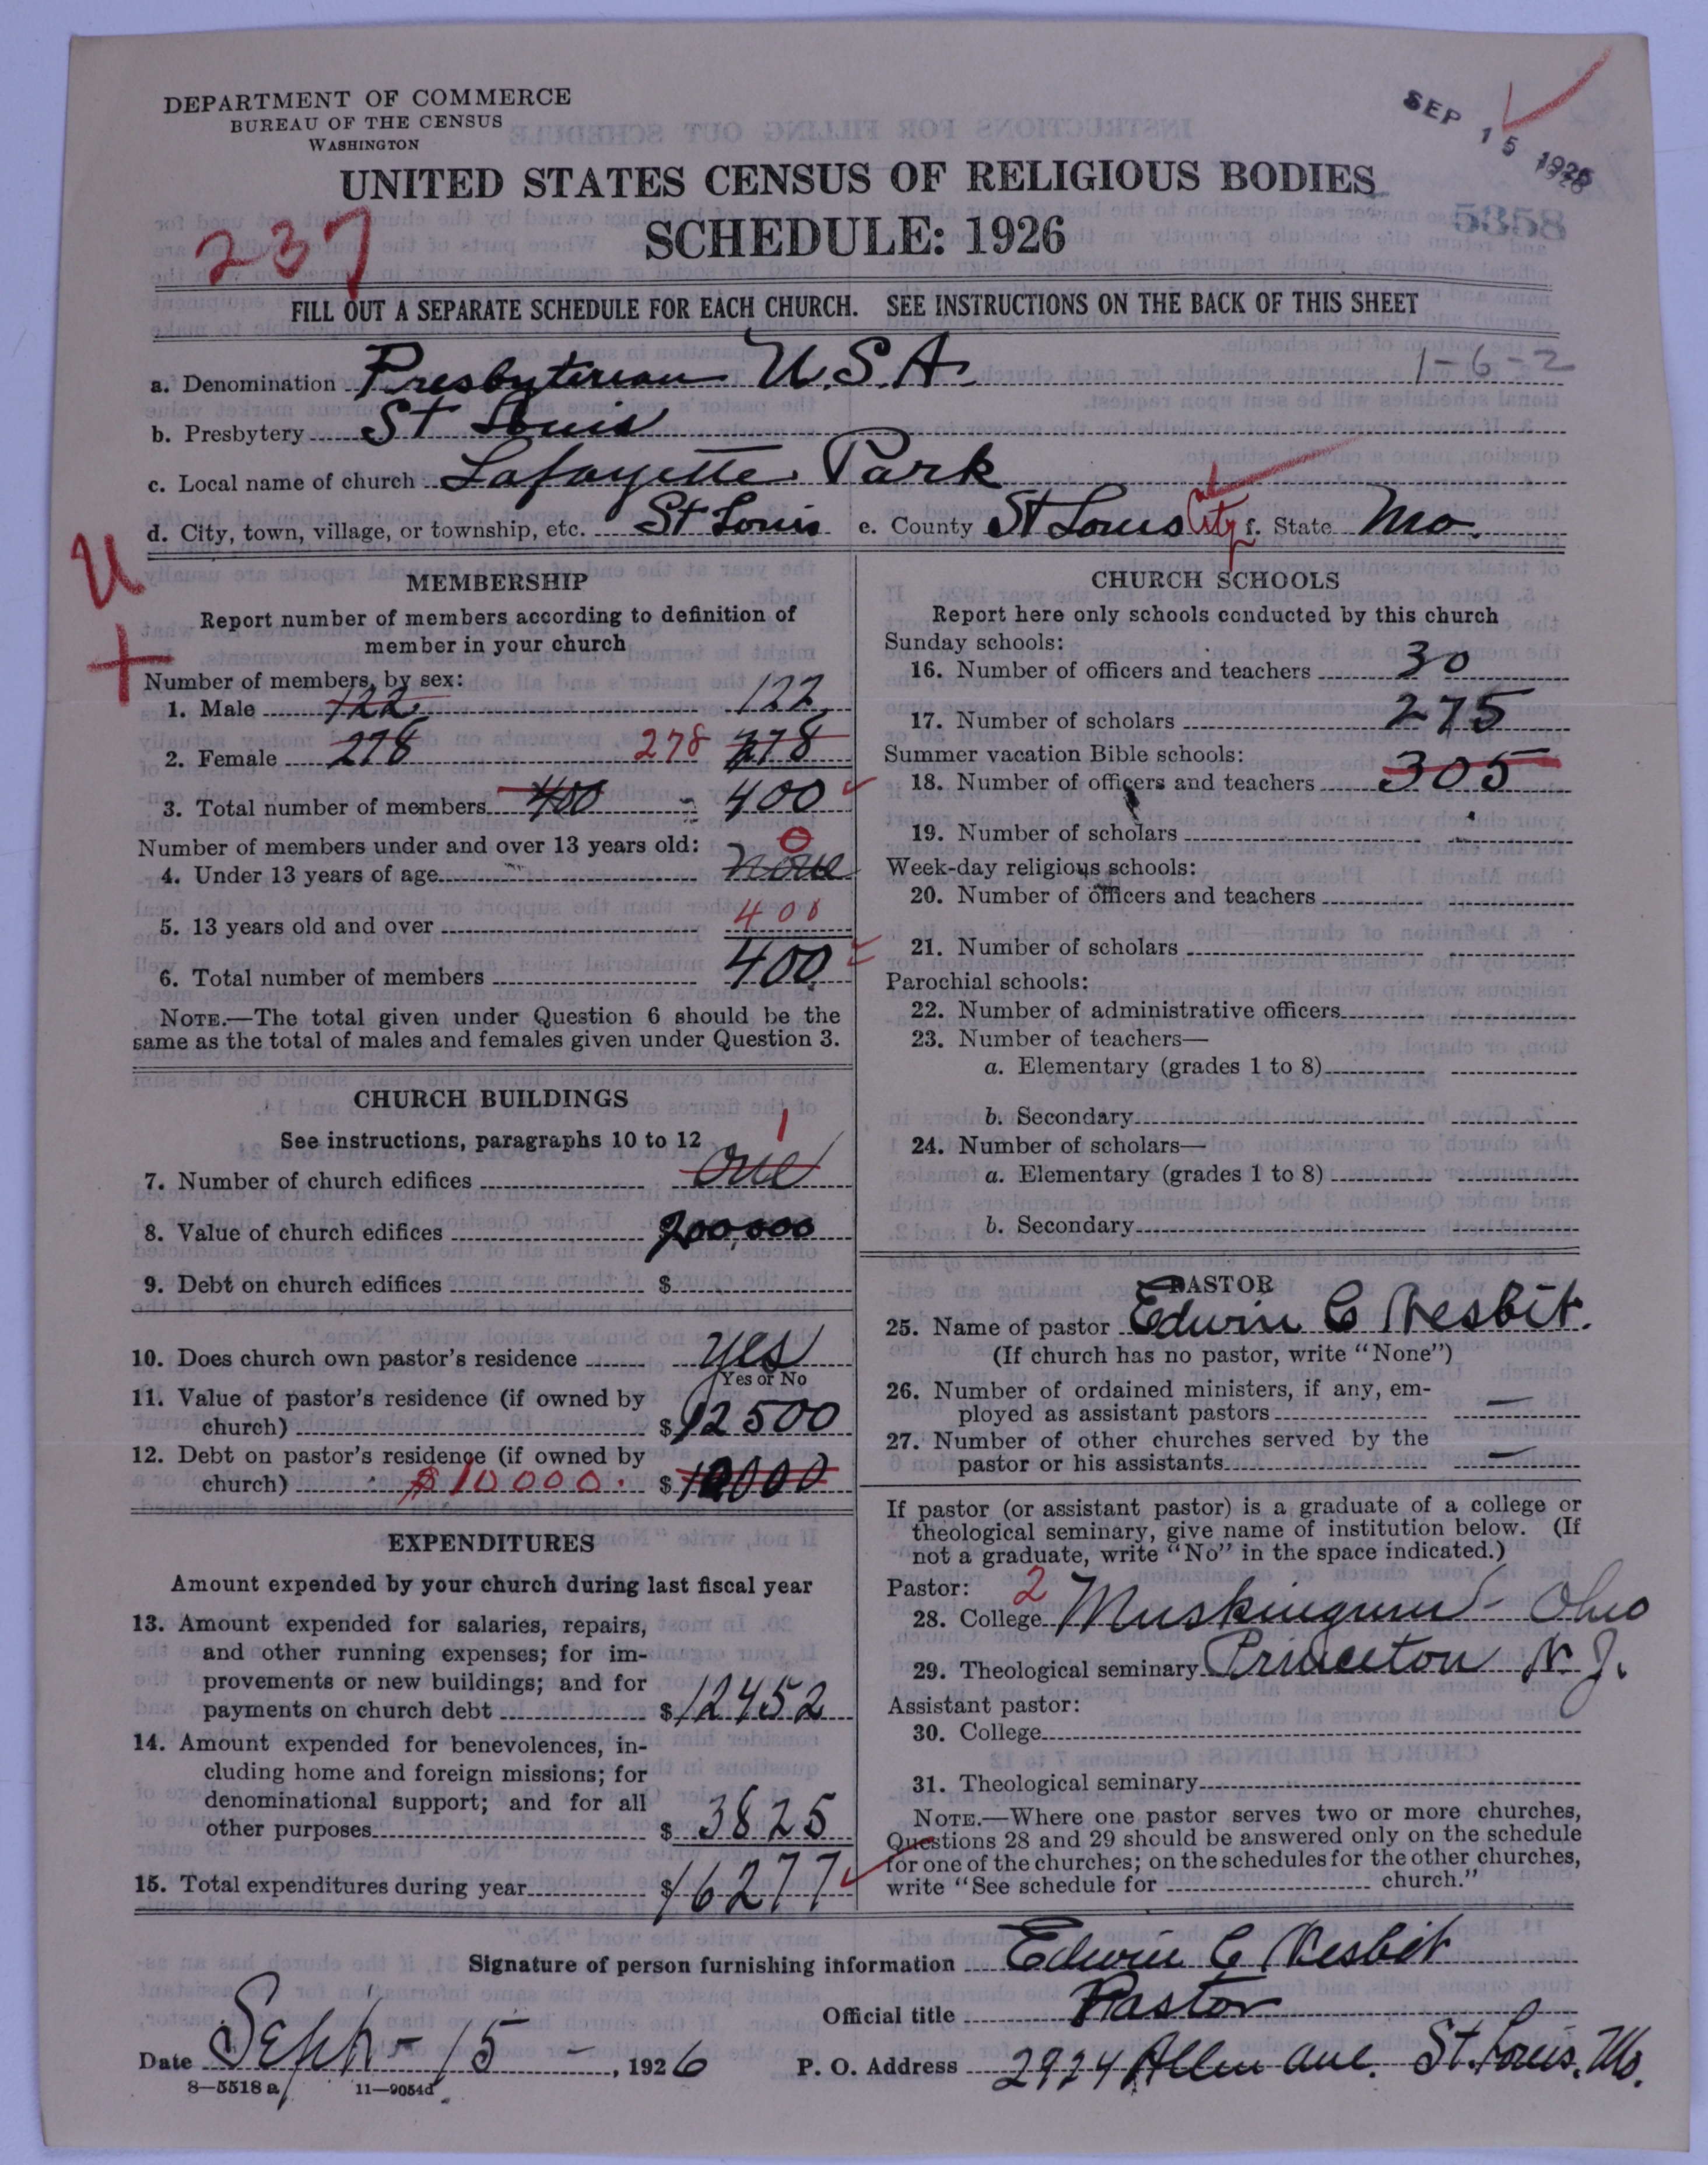 DEPARTMENT OF COMMERCE
BUREAU OF THE CENSUS
WASHINGTON
SEP 15 1926
UNITED STATES CENSUS OF RELIGIOUS BODIES
5358
237
SCHEDULE: 1926
FILL OUT A SEPARATE SCHEDULE FOR EACH CHURCH. SEE INSTRUCTIONS ON THE BACK OF THIS SHEET
a. Denomination Presbyterian U.S.A. 1-6-2
b. Presbytery St Louis
c. Local name of church Lafayette Park
d. City, town, village, or township, etc. St Louis e. County St Louis City f. State Mo.
U
+
MEMBERSHIP
Report number of members according to definition of
member in your church
Number of members, by sex:
1. Male 122 122
2. Female 278 278 278
3. Total number of members 400 400
Number of members under and over 13 years old: 0
4. Under 13 years of age none
5. 13 years old and over 400
6. Total number of members 400
NOTE.—The total given under Question 6 should be the
same as the total of males and females given under Question 3.
CHURCH BUILDINGS
See instructions, paragraphs 10 to 12 1
7. Number of church edifices one
8. Value of church edifices 200,000
9. Debt on church edifices $
10. Does church own pastor's residence yes
Yes or No
11. Value of pastor's residence (if owned by
church) $12500
12. Debt on pastor's residence (if owned by
church) $10000. $10000
EXPENDITURES
Amount expended by your church during last fiscal year
13. Amount expended for salaries, repairs,
and other running expenses; for im-
provements or new buildings; and for
payments on church debt $12452
14. Amount expended for benevolences, in-
cluding home and foreign missions; for
denominational support; and for all
other purposes $3825
15. Total expenditures during year $16277
CHURCH SCHOOLS
Report here only schools conducted by this church
Sunday schools:
16. Number of officers and teachers 30
17. Number of scholars 275
Summer vacation Bible schools:
18. Number of officers and teachers 305
19. Number of scholars
Week-day religious schools:
20. Number of officers and teachers
21. Number of scholars
Parochial schools:
22. Number of administrative officers
23. Number of teachers—
a. Elementary (grades 1 to 8)
b. Secondary
24. Number of scholars—
a. Elementary (grades 1 to 8)
b. Secondary
PASTOR
25. Name of pastor Edwin C Nesbit.
(If church has no pastor, write "None")
26. Number of ordained ministers, if any, em-
ployed as assistant pastors —
27. Number of other churches served by the
pastor or his assistants —
If pastor (or assistant pastor) is a graduate of a college or
theological seminary, give name of institution below. (If
not a graduate, write "No" in the space indicated.)
Pastor: 2
28. College Muskingum - Ohio
29. Theological seminary Princeton N.J.
Assistant pastor:
30. College
31. Theological seminary
NOTE.—Where one pastor serves two or more churches,
Questions 28 and 29 should be answered only on the schedule
for one of the churches; on the schedules for the other churches,
write "See schedule for church."
Signature of person furnishing information Edwin C Nesbit
Official title Pastor
Date Sept - 15 -, 1926 P. O. Address 2924 Allen ave. St. Louis, Mo.
8—5518 a 11—9054d